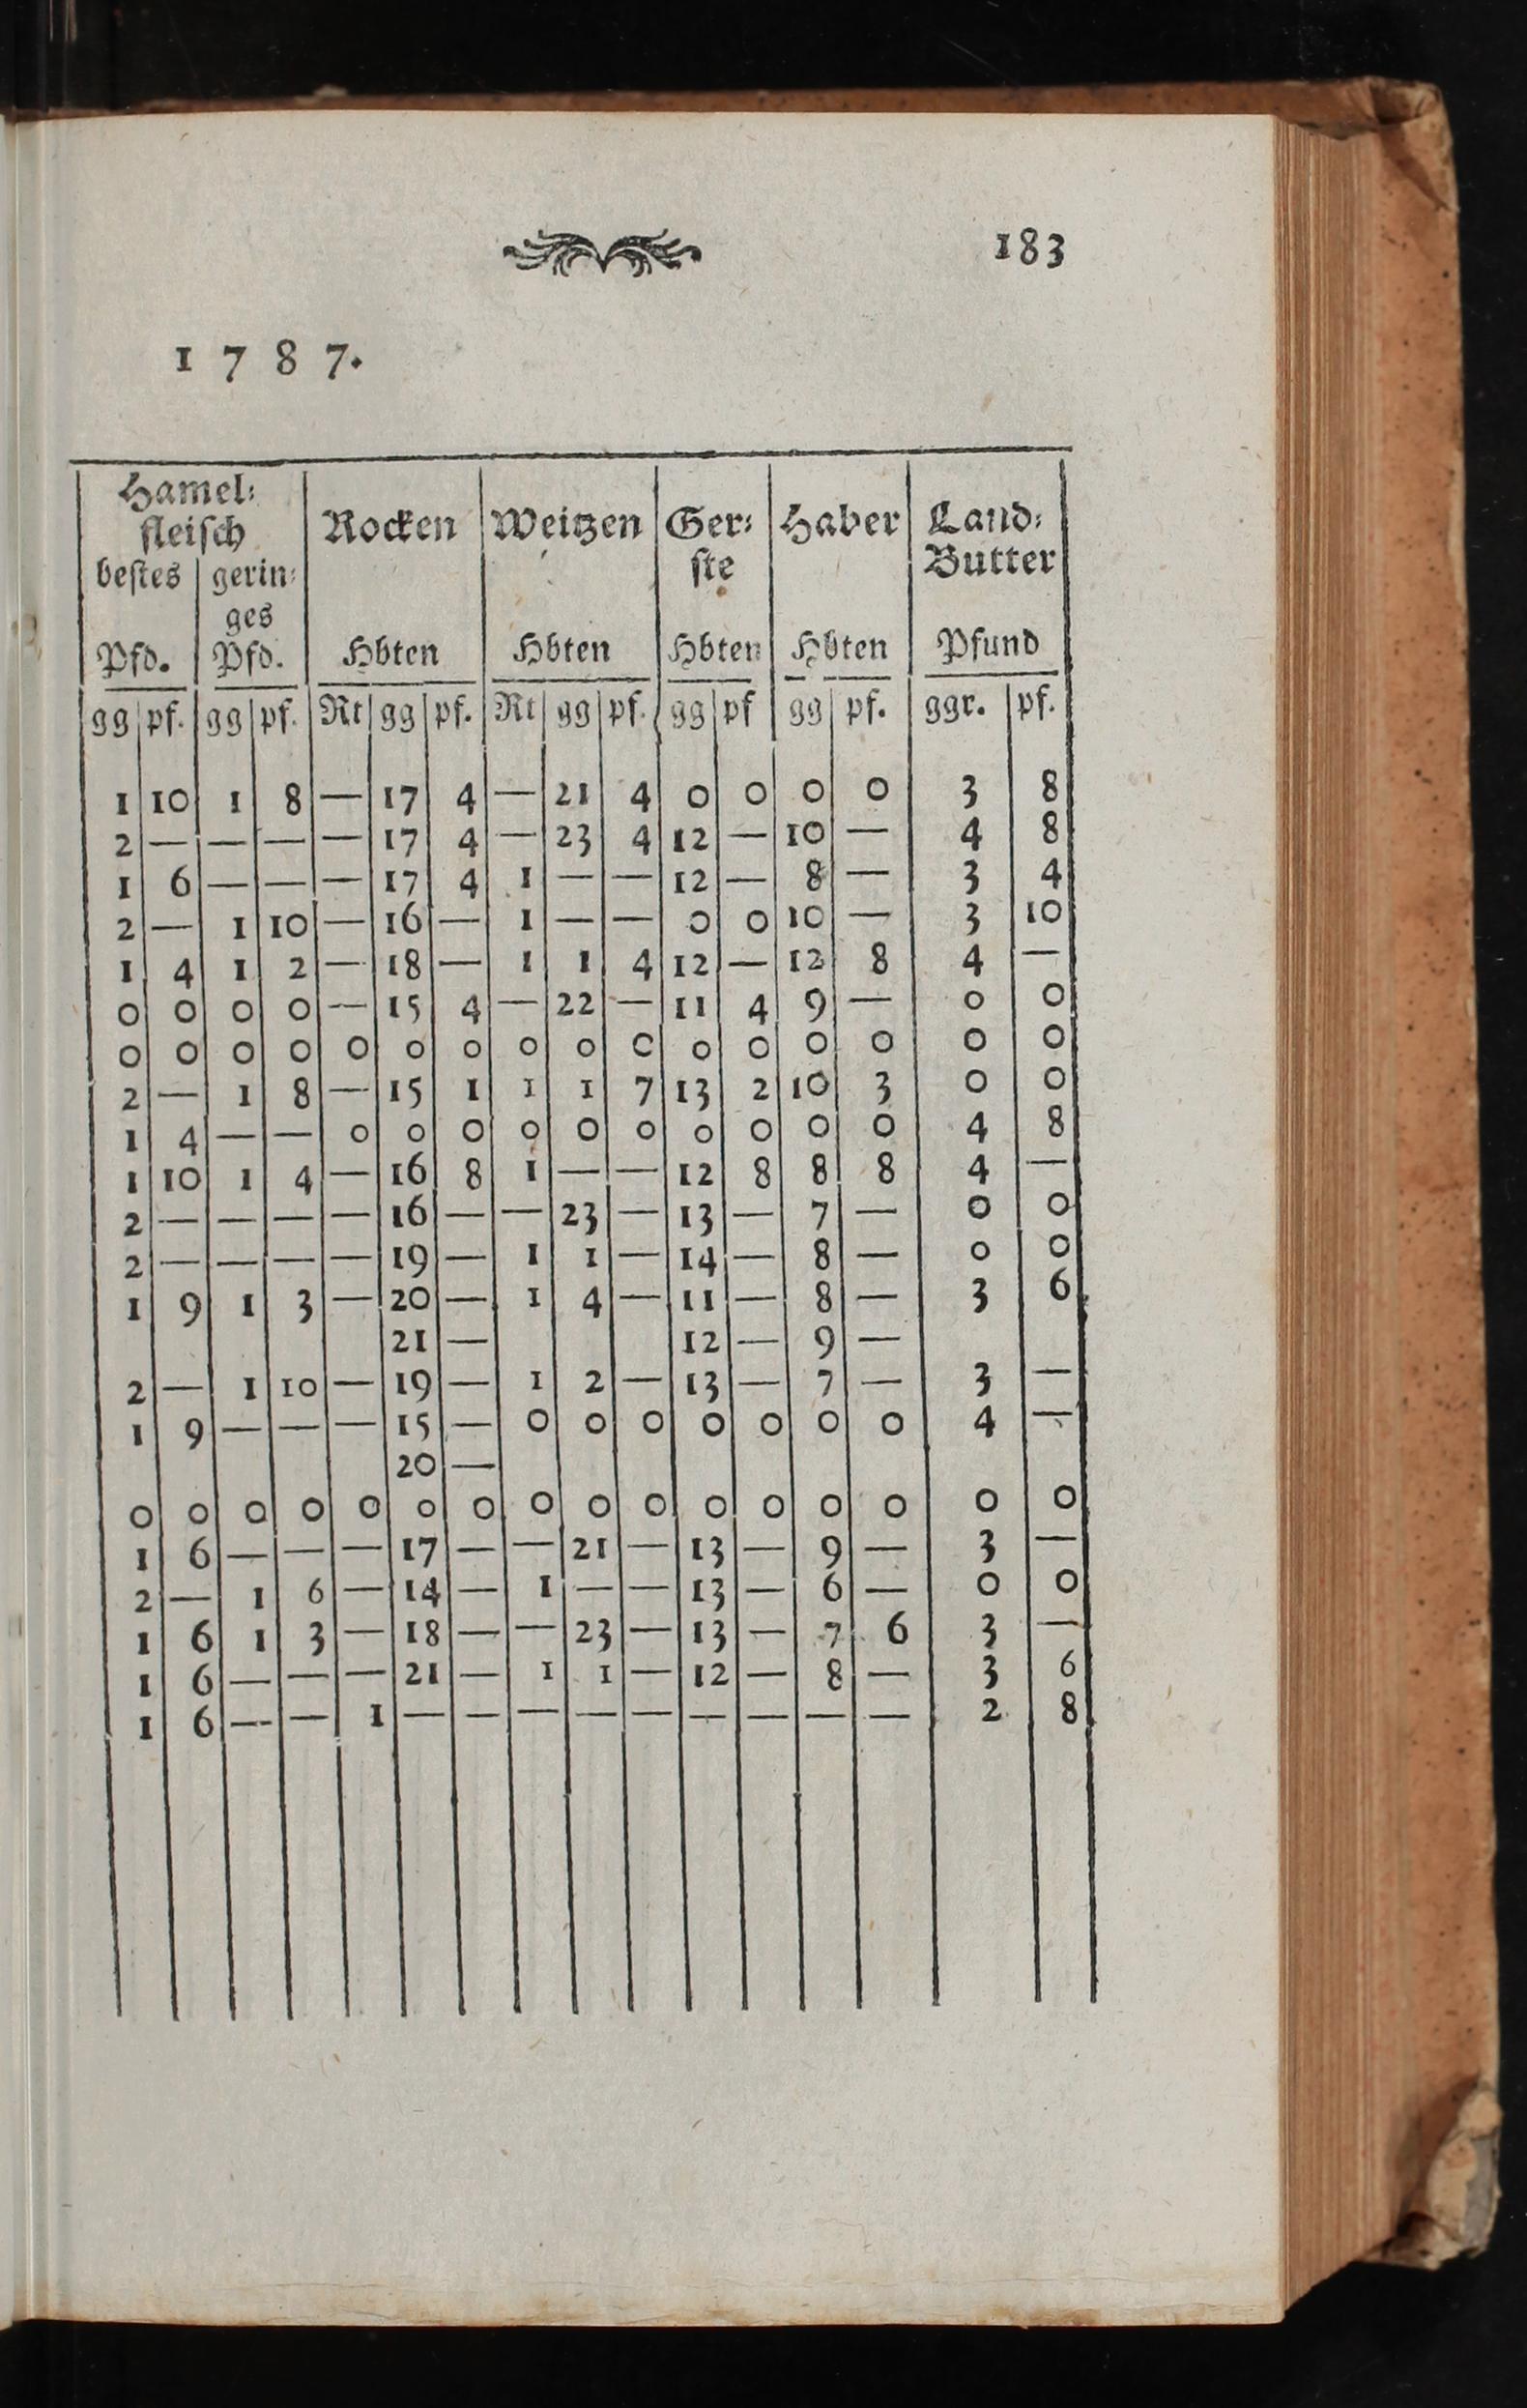 183
1787.
Hamel= fleisch | Rocken | Weitzen | Ger= ste | Haber | Land= Butter
bestes | gerin= ges
Pfd. | Pfd. | Hbten | Hbten | Hbten | Hbten | Pfund
gg | pf. | gg | pf. | Rt | gg | pf. | Rt | gg | pf. | gg | pf | gg | pf. | ggr. | pf.
1 | 10 | 1 | 8 | — | 17 | 4 | — | 21 | 4 | 0 | 0 | 0 | 0 | 3 | 8
2 | — | — | — | — | 17 | 4 | — | 23 | 4 | 12 | — | 10 | — | 4 | 8
1 | 6 | — | — | — | 17 | 4 | 1 | — | — | 12 | — | 8 | — | 3 | 4
2 | — | 1 | 10 | — | 16 | — | 1 | — | — | 0 | 0 | 10 | — | 3 | 10
1 | 4 | 1 | 2 | — | 18 | — | 1 | 1 | 4 | 12 | — | 12 | 8 | 4 | —
0 | 0 | 0 | 0 | — | 15 | 4 | — | 22 | — | 11 | 4 | 9 | — | 0 | 0
0 | 0 | 0 | 0 | 0 | 0 | 0 | 0 | 0 | 0 | 0 | 0 | 0 | 0 | 0 | 0
2 | — | 1 | 8 | — | 15 | 1 | 1 | 1 | 7 | 13 | 2 | 10 | 3 | 0 | 0
1 | 4 | — | — | 0 | 0 | 0 | 0 | 0 | 0 | 0 | 0 | 0 | 0 | 4 | 8
1 | 10 | 1 | 4 | — | 16 | 8 | 1 | — | — | 12 | 8 | 8 | 8 | 4 | —
2 | — | — | — | — | 16 | — | — | 23 | — | 13 | — | 7 | — | 0 | 0
2 | — | — | — | — | 19 | — | 1 | 1 | — | 14 | — | 8 | — | 0 | 0
1 | 9 | 1 | 3 | — | 20 | — | 1 | 4 | — | 11 | — | 8 | — | 3 | 6
21 | — | 12 | — | 9 | —
2 | — | 1 | 10 | — | 19 | — | 1 | 2 | — | 13 | — | 7 | — | 3 | —
1 | 9 | — | — | — | 15 | — | 0 | 0 | 0 | 0 | 0 | 0 | 0 | 4 | —
20 | —
0 | 0 | 0 | 0 | 0 | 0 | 0 | 0 | 0 | 0 | 0 | 0 | 0 | 0 | 0 | 0
1 | 6 | — | — | — | 17 | — | — | 21 | — | 13 | — | 9 | — | 3 | —
2 | — | 1 | 6 | — | 14 | — | 1 | — | — | 13 | — | 6 | — | 0 | 0
1 | 6 | 1 | 3 | — | 18 | — | — | 23 | — | 13 | — | 7 | 6 | 3 | —
1 | 6 | — | — | — | 21 | — | 1 | 1 | — | 12 | — | 8 | — | 3 | 6
1 | 6 | — | — | 1 | — | — | — | — | — | — | — | — | — | 2 | 8